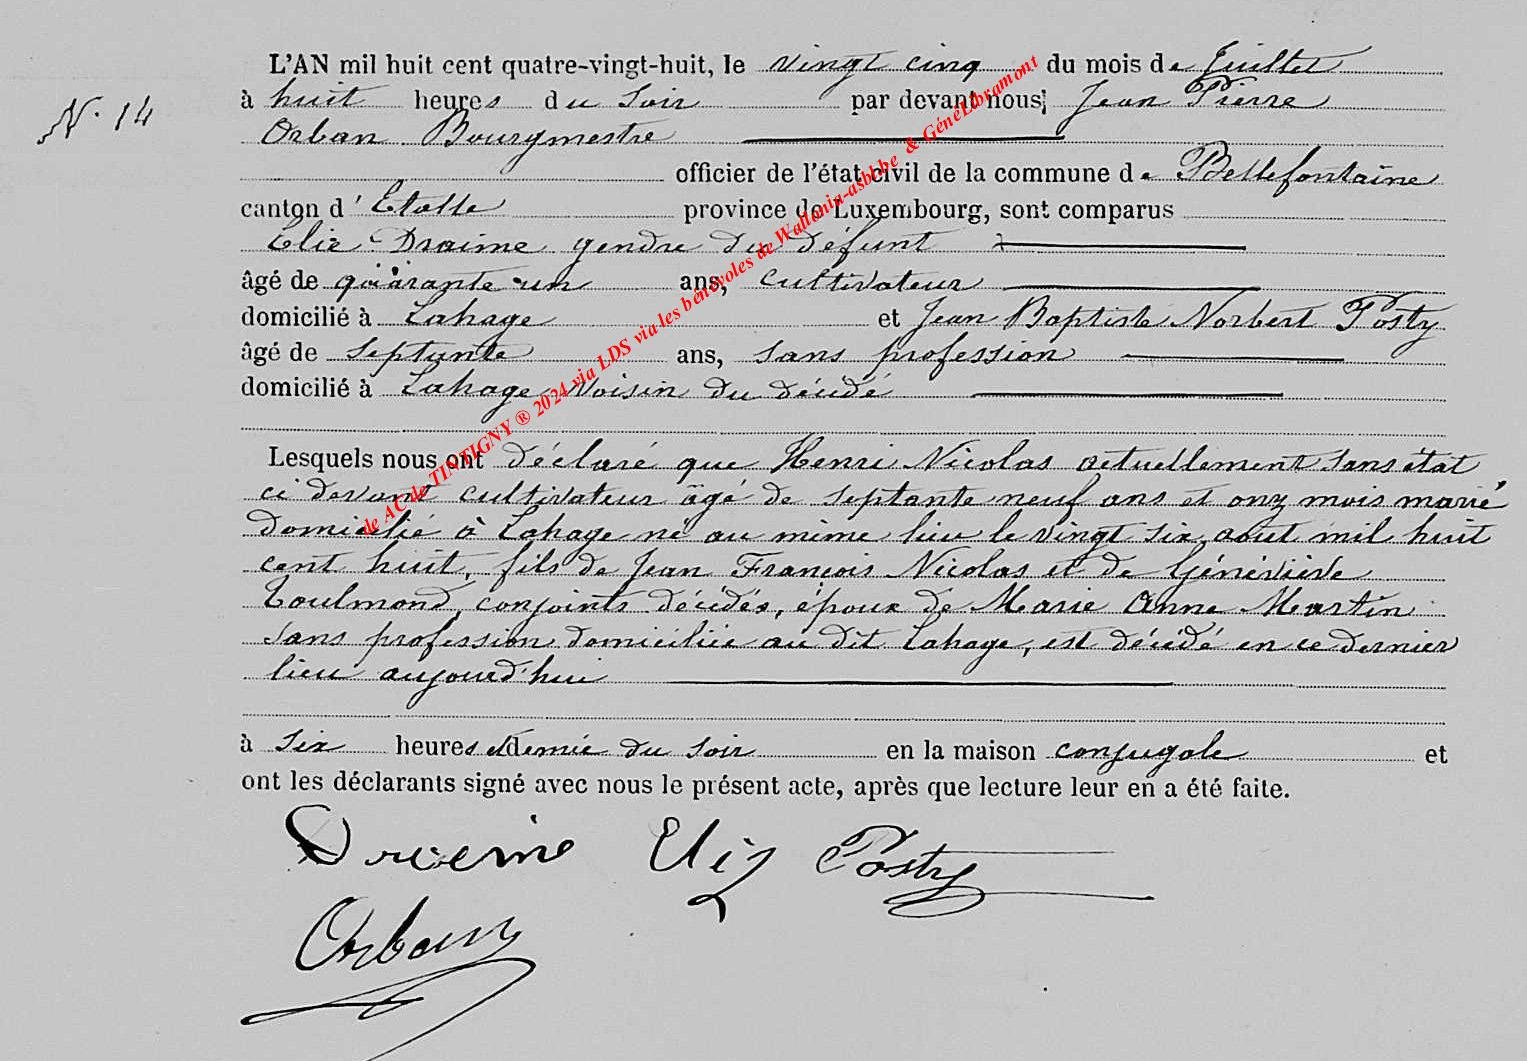 L'AN mil huit cent quatre-vingt-huit, le vingt cinq du mois de Juillet
N. 14
à huit heures du Soir par devant nous; Jean Pierre
Orban Bourgmestre
officier de l'état civil de la commune de Bellefontaine
canton d'Etalle province de Luxembourg, sont comparus
Elie Draime gendre du défunt
âgé de quarante un ans, cultivateur
domicilié à Lahage et Jean Baptiste Norbert Posty
âgé de septante ans, sans profession
domicilié à Lahage Voisin du décédé
Lesquels nous ont déclaré que Henri Nicolas actuellement sans état
ci devant cultivateur âgé de septante neuf ans et onz mois marié
domicilié à Lahage né au même lieu le vingt six aout mil huit
cent huit, fils de Jean François Nicolas et de Généviève
Toulmond, conjoints décédés, époux de Marie Anne Martin
sans profession domiciliée au dit Lahage, est décédé en ce dernier
lieu aujourd'hui
à six heures et demie du soir en la maison conjugale et
ont les déclarants signé avec nous le présent acte, après que lecture leur en a été faite.
Draime Elie Posty
Orban
de AC de TINTIGNY ® 2024 via LDS via les bénévoles de Wallonia-asbbbe & GénéLibramont